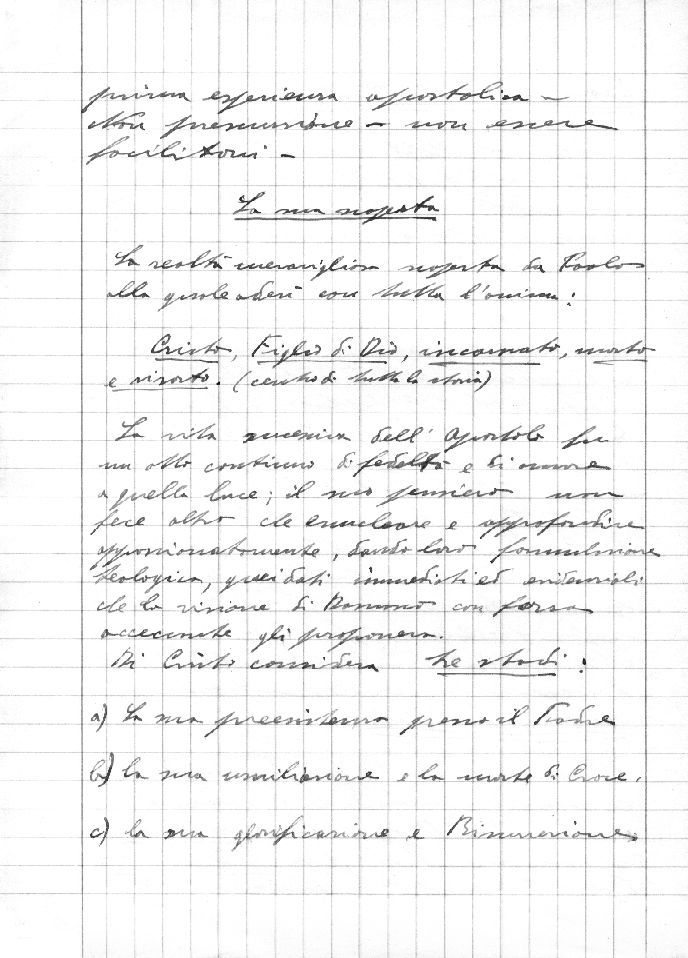 prima esperienza apostolica -
Non presunzione - non essere
faciloni -
La sua scoperta
La realtà meravigliosa scoperta da Paolo
alla quale aderì con tutta l'anima:
Cristo, Figlio di Dio, incarnato, morto
e risorto. (centro di tutta la storia)
La vita successiva dell'Apostolo fu
un atto continuo di fedeltà e di amore
a quella luce; il suo pensiero non
fece altro che enucleare e approfondire
appassionatamente, dando loro formulazione
teologica, quei dati immediati ed essenziali
che la visione di Damasco con forza
accecante gli proponeva.
Di Cristo considera tre stadi:
a) La sua preesistenza presso il Padre
b) la sua umiliazione e la morte di Croce.
c) la sua glorificazione e Risurrezione.